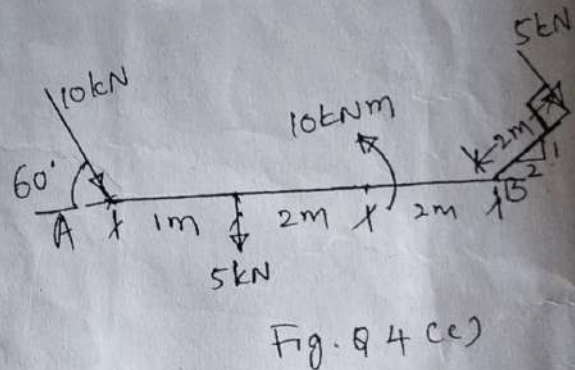 5kN
10kN
10kNm
60°
2m
1
2
A
1m
2m
2m
B
5kN
Fig. Q 4 (c)